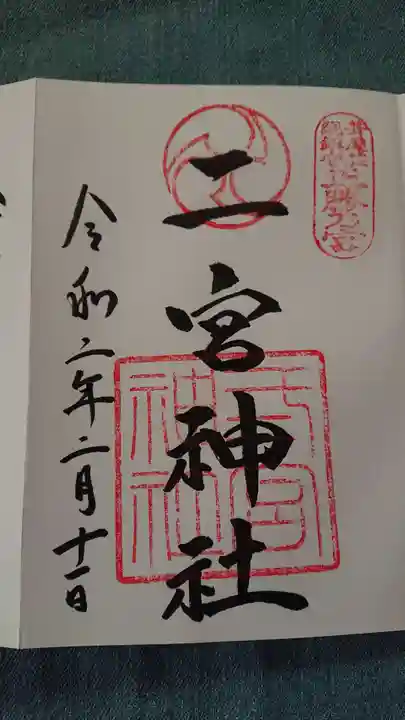 二宮神社
令和二年二月十一日
二宮神社